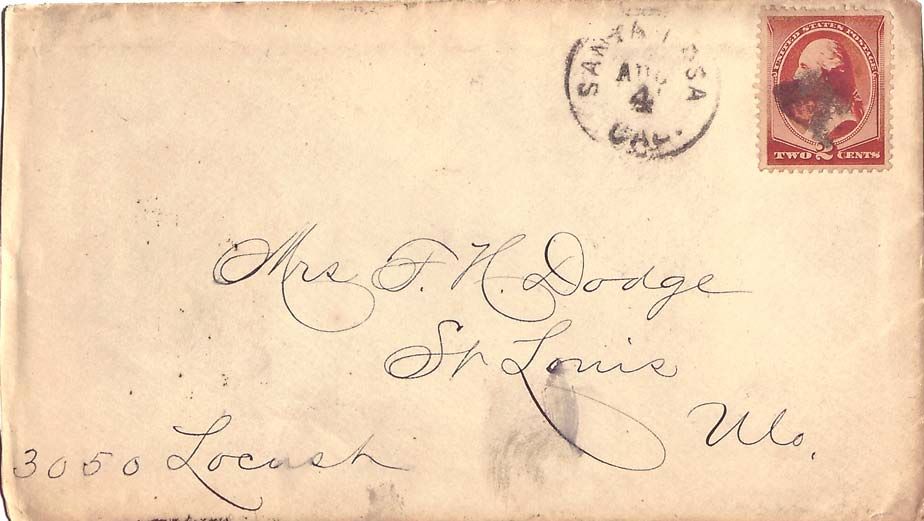 SANTA ROSA
AUG
4
CAL.
UNITED STATES POSTAGE
TWO 2 CENTS
Mrs F. H. Dodge
St Louis
Mo.
3050 Locust